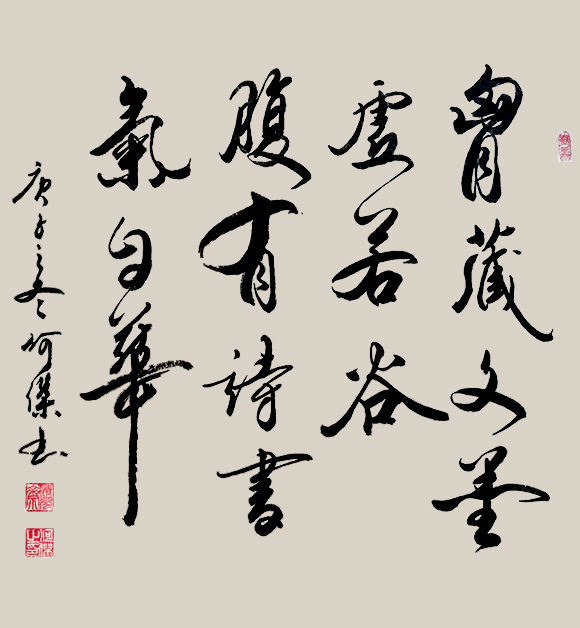 胷藏文墨
虚若谷
腹有詩書
氣自華
庚子之冬何傑书